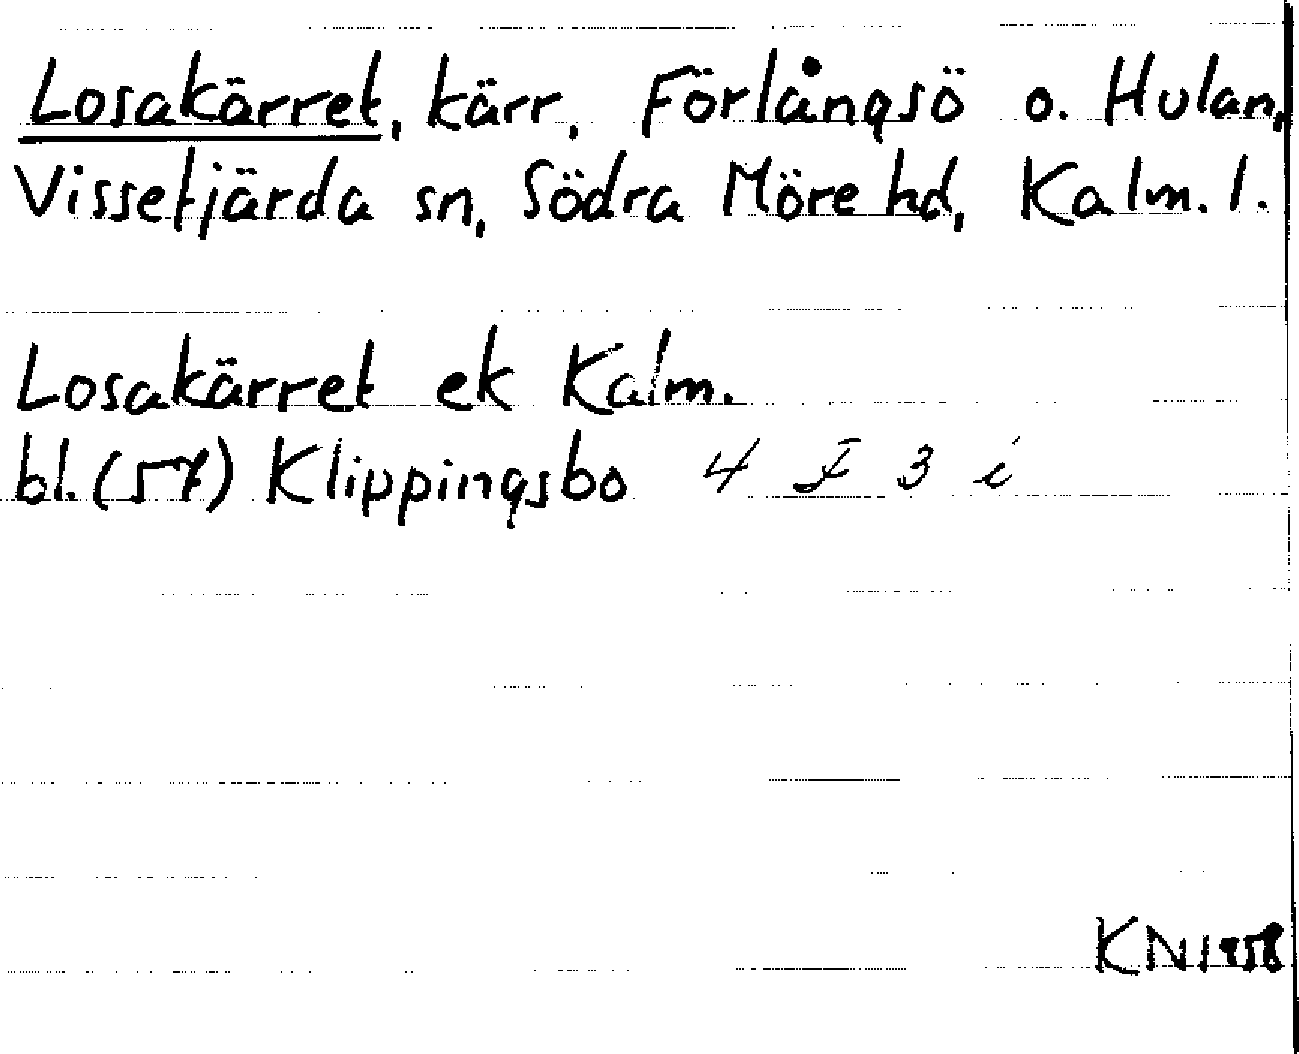 Losakärret, kärr, Förlångsö o. Hulan,
Vissefjärda sn, Södra Möre hd, Kalm. l.
Losakärret ek Kalm.
bl. (57) Klippingsbo 4 F 3 i
KN 1958